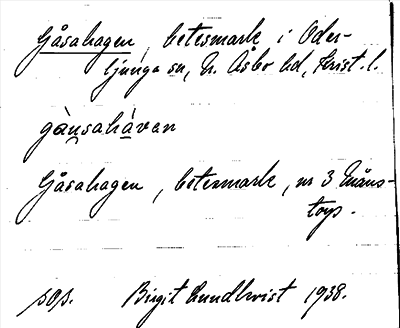 Gåsahagen, betesmark i Oder-
ljunga sn, N. Åsbo hd, Krist. l.
gànsahàvan
Gåsahagen, betesmark, nr 3 Måns-
torp.
sos. Birgit Lundkvist 1938.